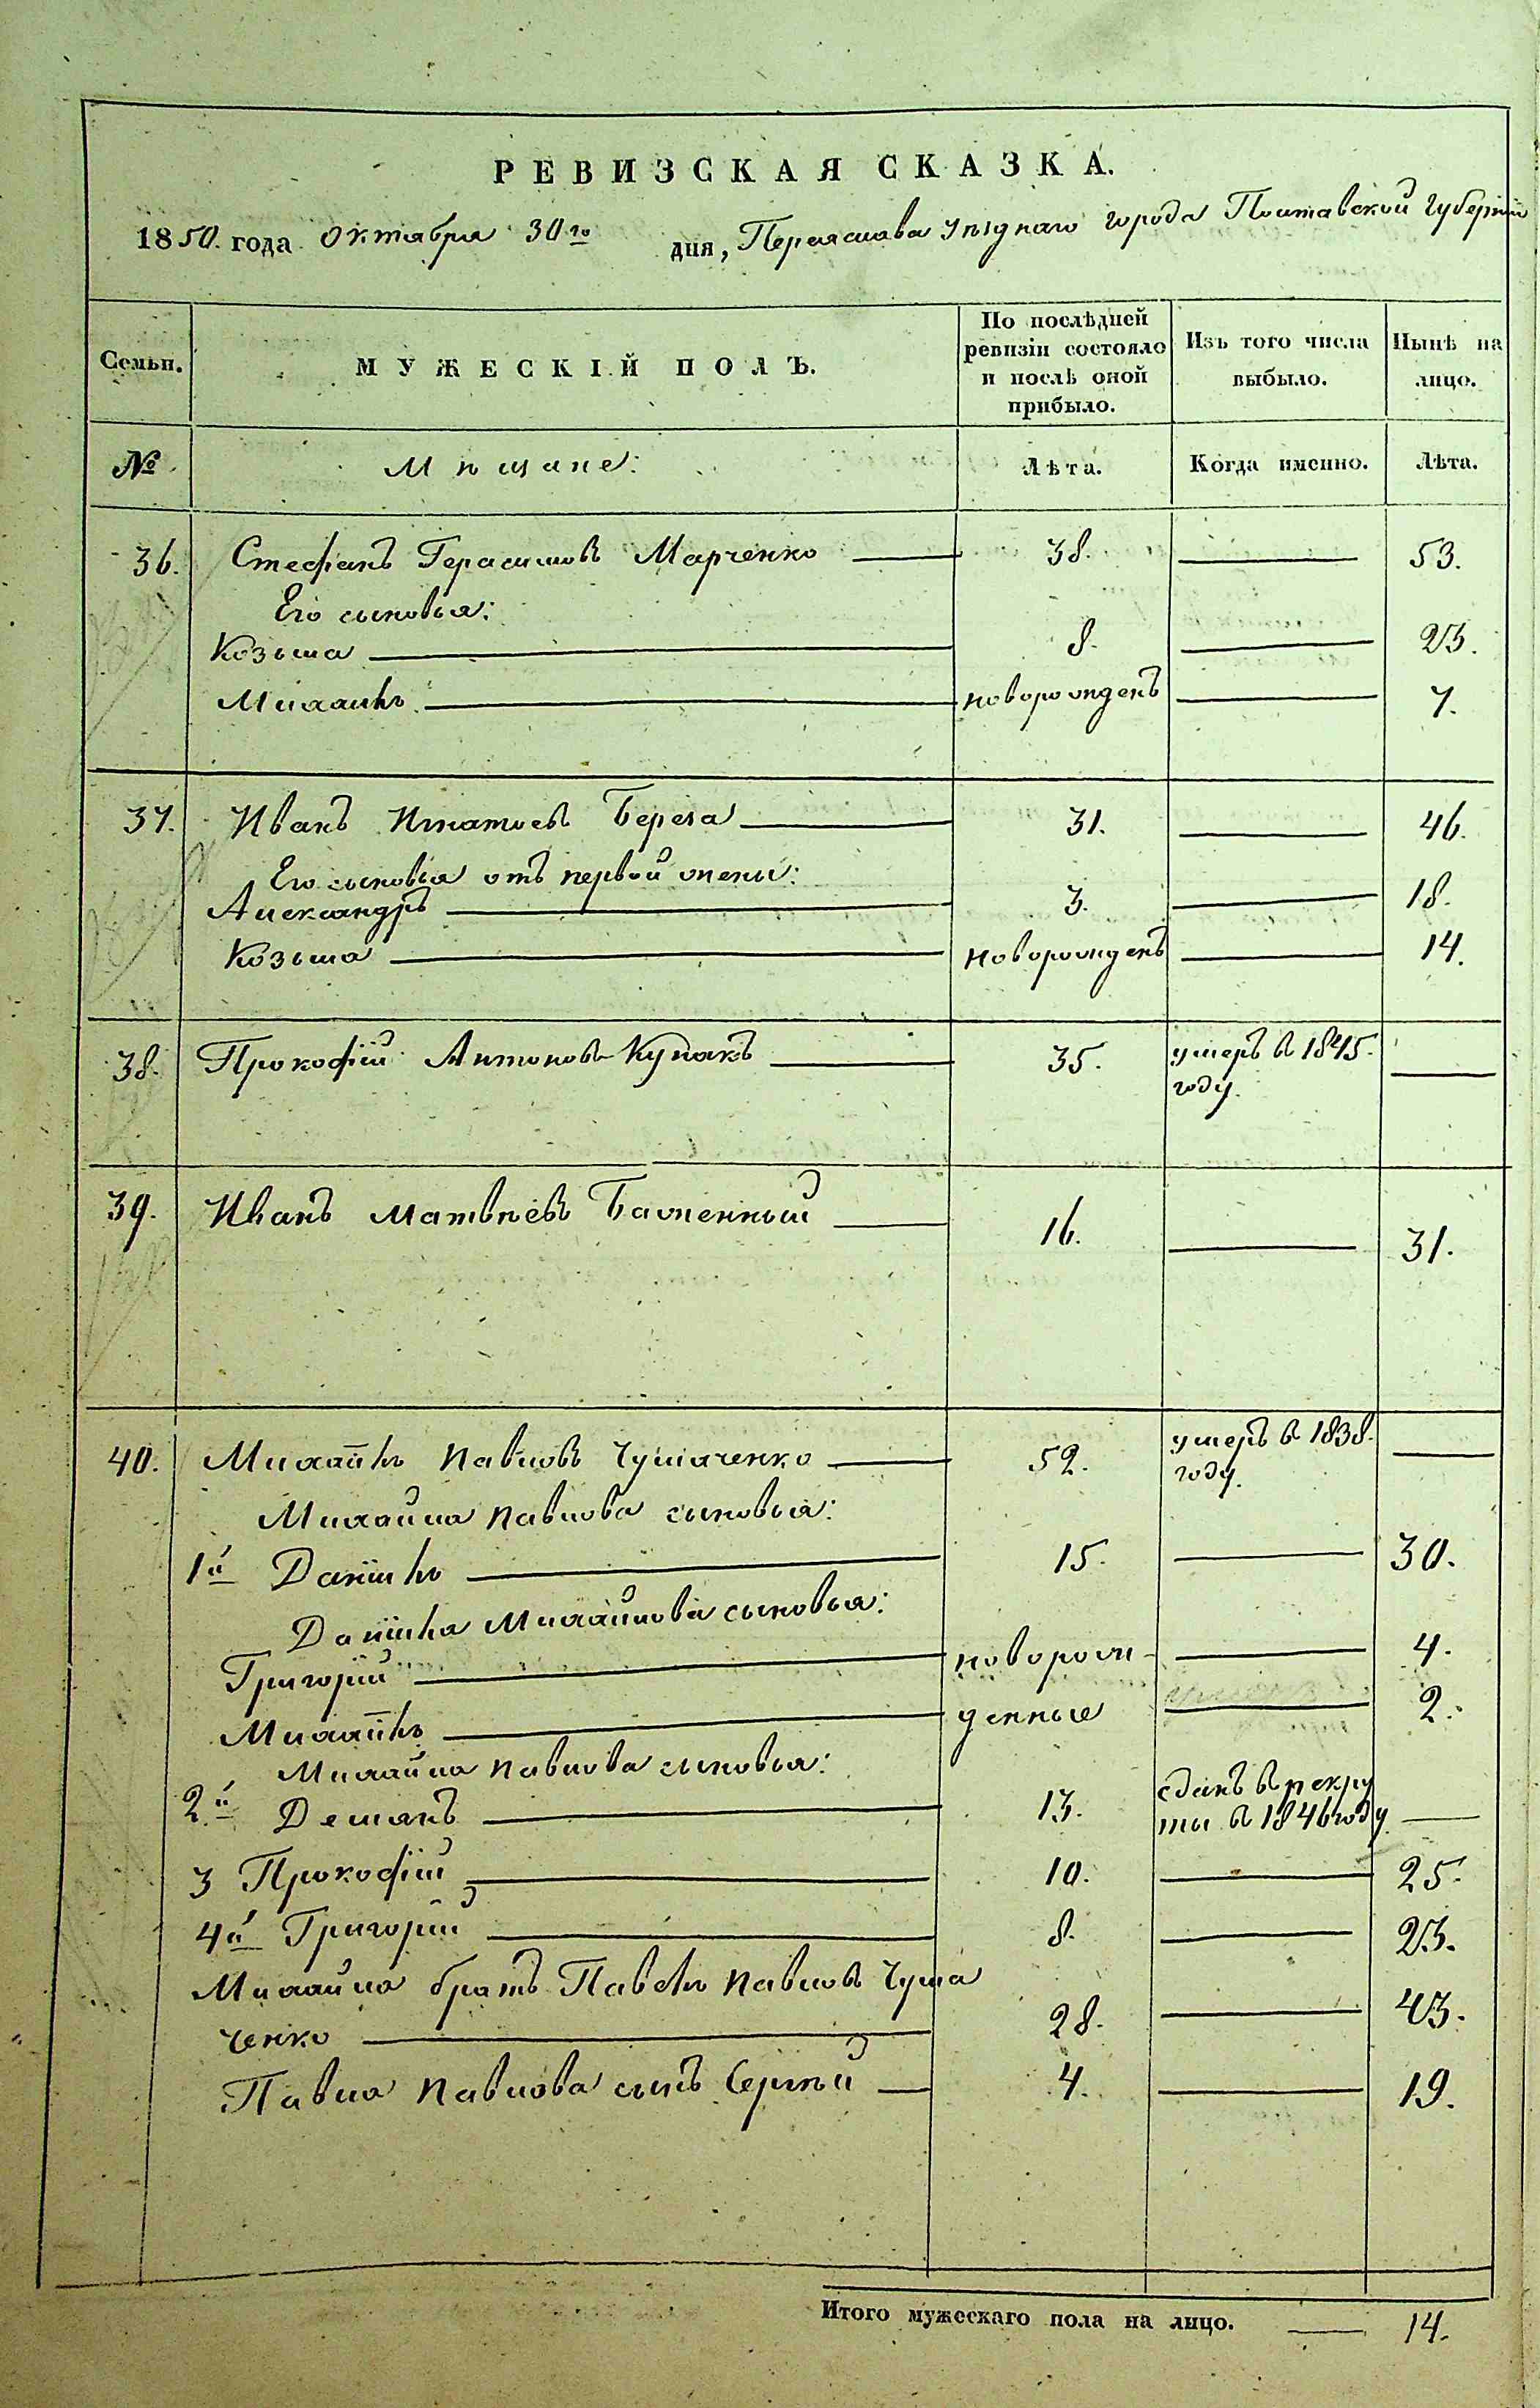 РЕВИЗСКАЯ СКАЗКА.
1850. года Октября 30го дня, Переяслава уѣзднаго города Полтавской Губерніи
Семьи.
МУЖЕСКІЙ ПОЛЪ.
По послѣдней ревизіи состояло и послѣ оной прибыло.
Изъ того числа выбыло.
Нынѣ на лицо.
№
Мѣщане:
Лѣта.
Когда именно.
Лѣта.
36. Стефанъ Герасимовъ Марченко 38. 53.
Его сыновья:
Козьма 8. 23.
Михаилъ новорожденъ 7.
37. Иванъ Игнатьевъ Береза 31. 46.
Его сыновья отъ первой жены:
Александръ 3. 18.
Козьма новорожденъ 14.
38. Прокофій Антоновъ 35. умеръ в 1845.
году.
39. Иванъ Матвѣевъ Баженный 16. 31.
40. Михаилъ Павловъ Чумаченко 52. умеръ в 1838.
году.
Михайла Павлова сыновья:
1й Даніилъ 15. 30.
Даніила Михайлова сыновья:
Григорій новорож- 4.
Михаилъ денные 2.
Михайла Павлова сыновья:
2й Демьянъ 13. сданъ в рекру
ты в 1846 году
3 Прокофій 10. 25.
4й Григорій 8. 23.
Михайла братъ Павелъ Павловъ Чума
ченко 28. 43.
Павла Павлова сынъ Сергѣй 4. 19.
Итого мужескаго пола на лицо. 14.